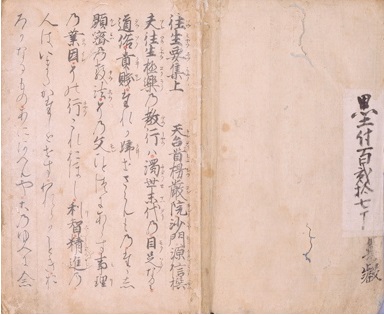 墨付百弐拾七丁
往生要集上　天台首楞嚴院沙門源信撰
夫往生極樂乃教行ハ濁世末代乃目足なり
道俗貴賤たれか歸せさらん
顯密乃教法その文一にあらす事理
乃業因その行これおほし利智精進乃
人はいまたかたしとせす
おろかなるものあにあへてせんや